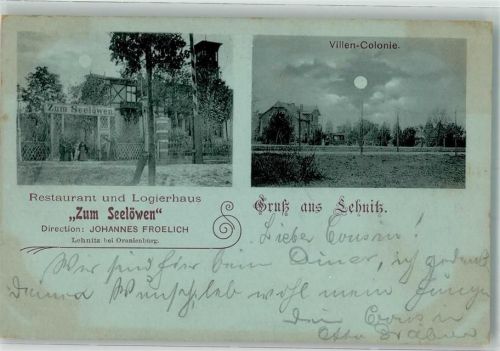 Zum Seelöwen
Villen-Colonie.
Restaurant und Logierhaus
„Zum Seelöwen"
Direction: JOHANNES FROELICH
Lehnitz bei Oranienburg.
Gruß aus Lehnitz.
Lieber Cousin!
Wir sind hier beim Diner, ich gedenk
Deines Wunsch, leb wohl mein Junge
Dein Cousin
Otto